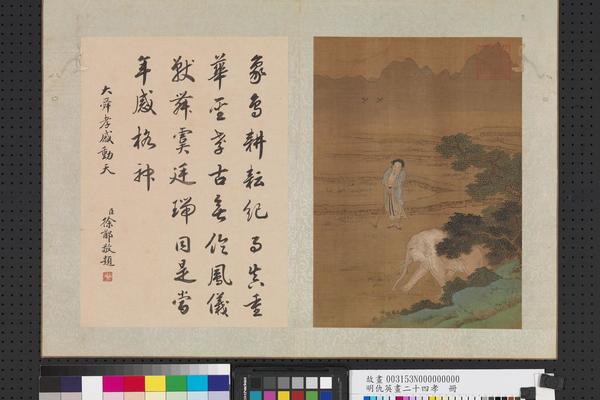 象鳥耕耘紀事真重
華至孝古無倫鳳儀
獸舞虞廷瑞因是當
年感格神
大舜孝感動天
臣徐郙敬題
故畫 003153N000000000
明仇英畫二十四孝 冊